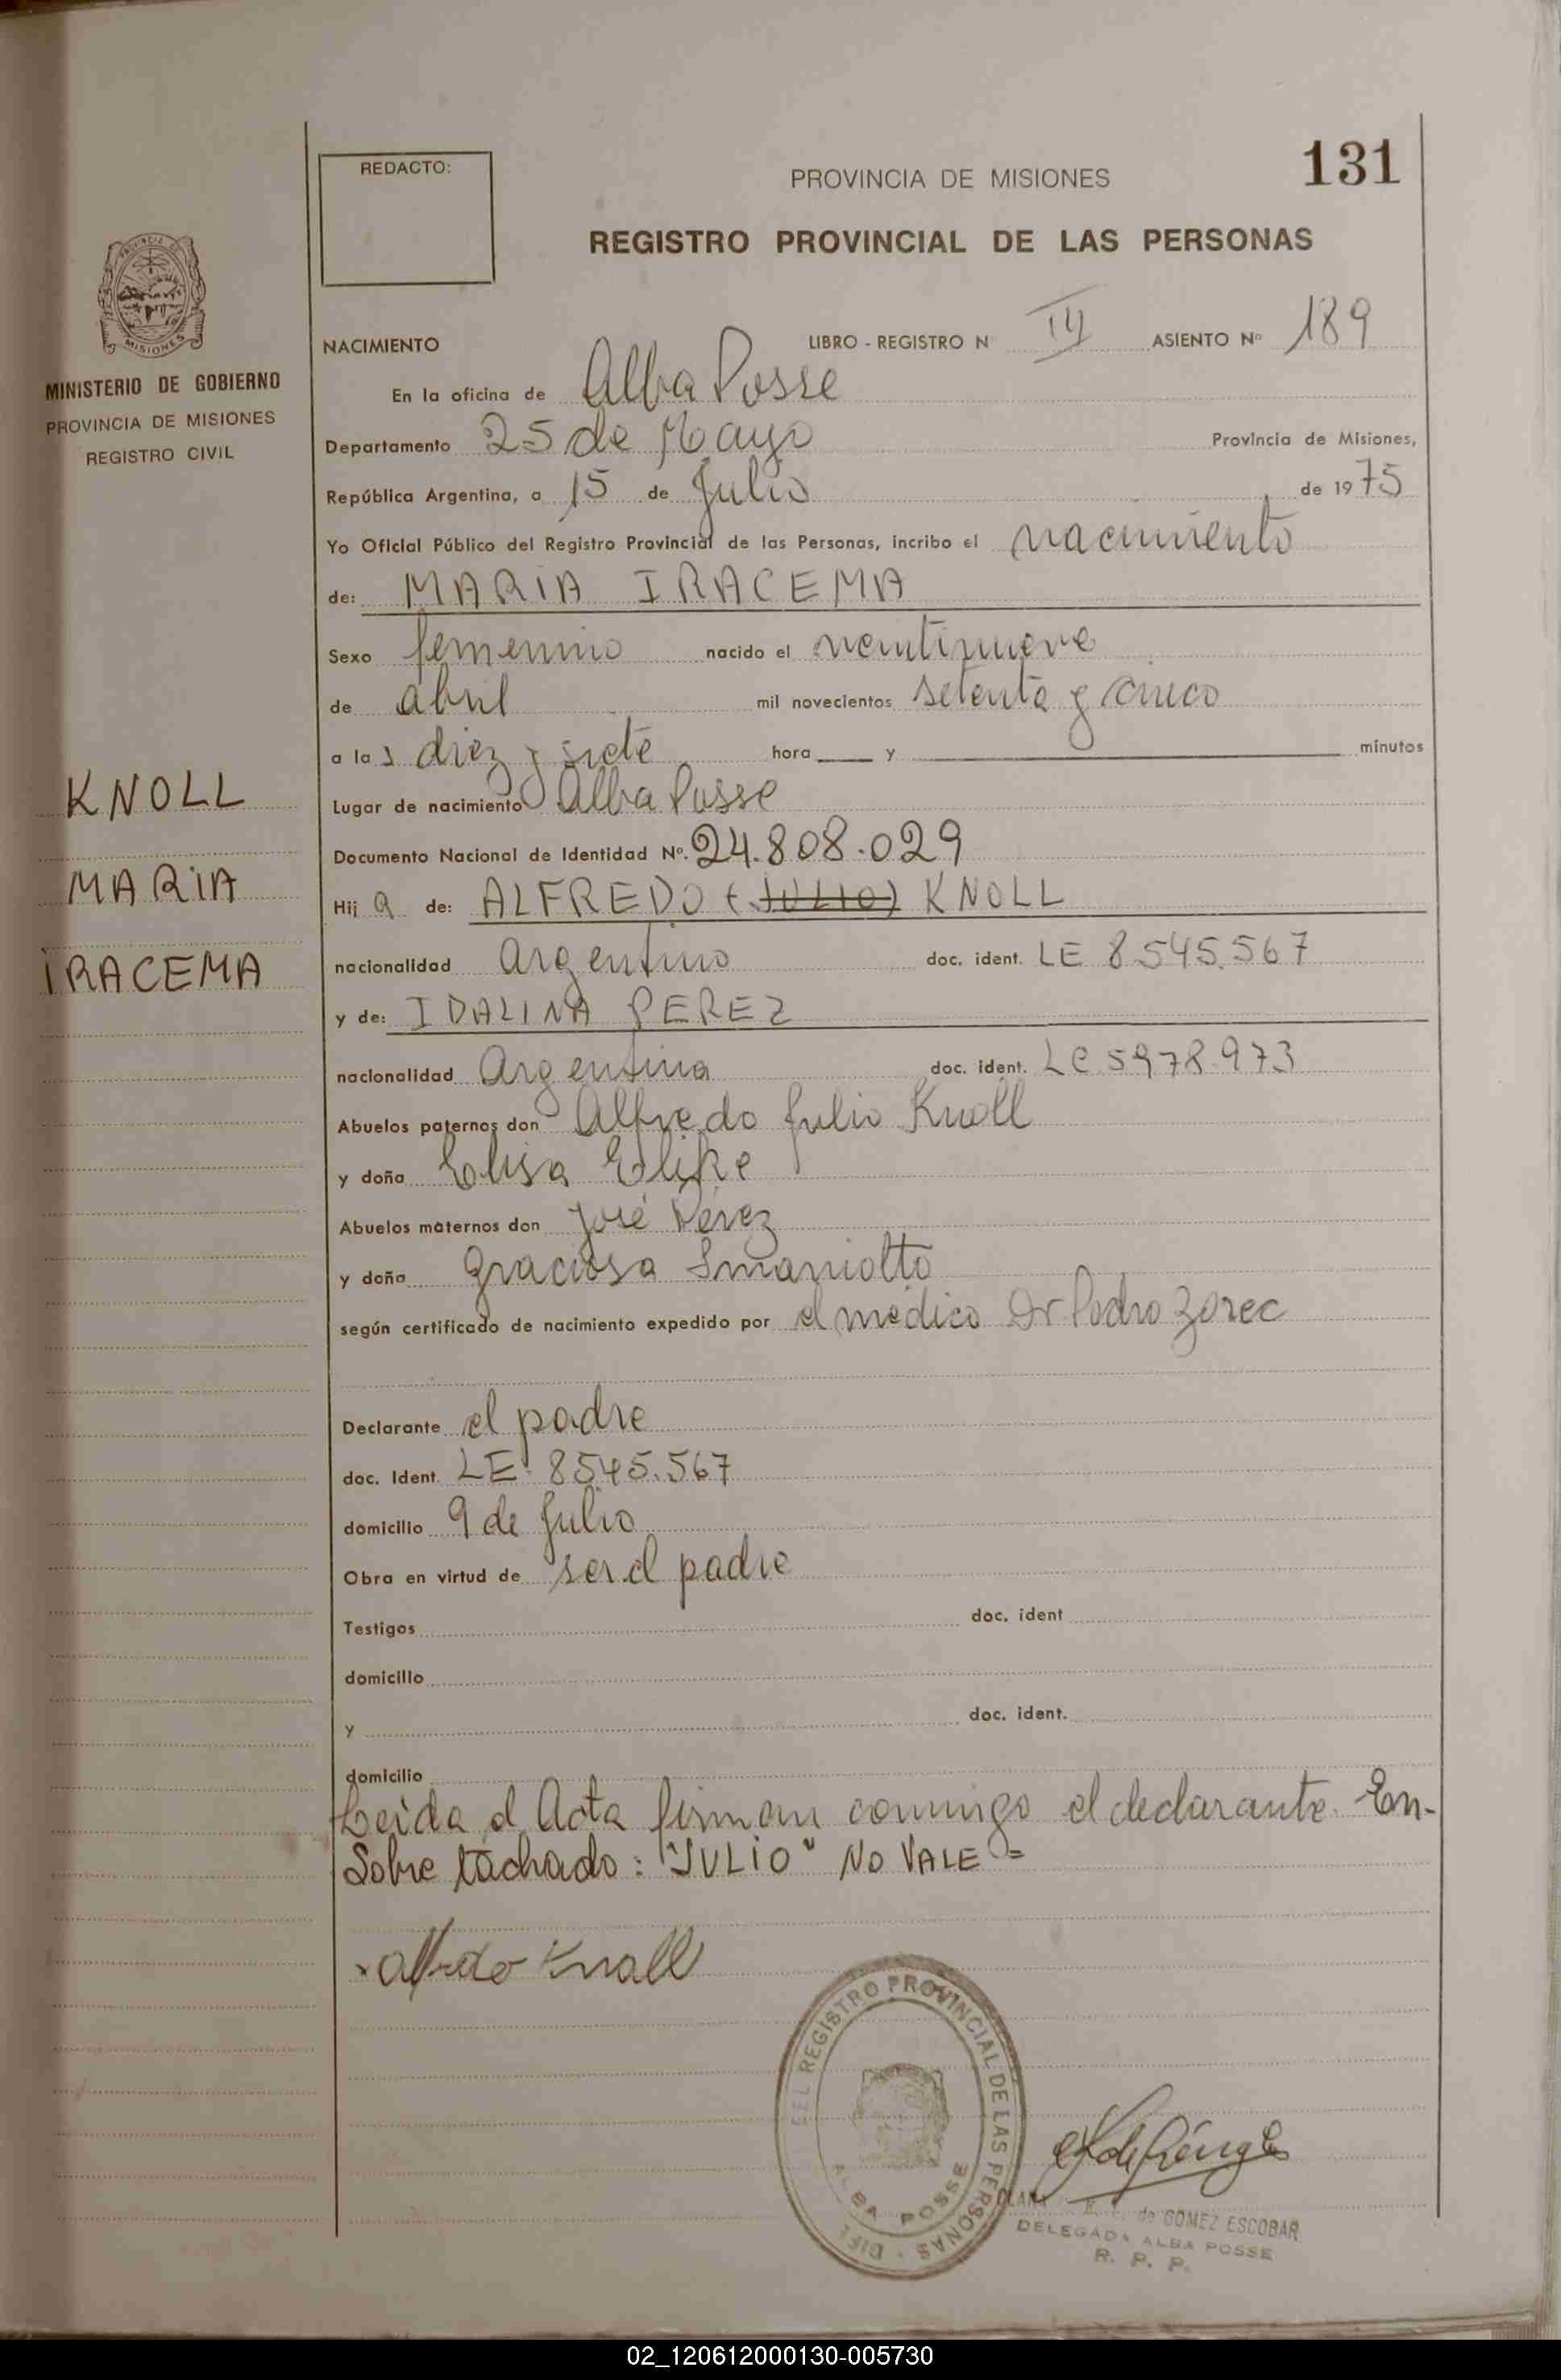 REDACTO:
PROVINCIA DE MISIONES
131
REGISTRO PROVINCIAL DE LAS PERSONAS
MISIONES
MINISTERIO DE GOBIERNO
PROVINCIA DE MISIONES
REGISTRO CIVIL
KNOLL
MARIA
IRACEMA
NACIMIENTO LIBRO - REGISTRO N ASIENTO Nº 189
En la oficina de Alba Posse
Departamento 25 de Mayo Provincia de Misiones,
República Argentina, a 15 de Julio de 1975
Yo Oficial Público del Registro Provincial de las Personas, incribo el nacimiento
de: MARIA IRACEMA
Sexo femenino nacido el veintinueve
de abril mil novecientos setenta y cinco
a las diez y siete hora y minutos
Lugar de nacimiento Alba Posse
Documento Nacional de Identidad Nº. 24.808.029
Hija de: ALFREDO (JULIO) KNOLL
nacionalidad Argentino doc. ident. LE 8.545.567
y de: IDALINA PEREZ
nacionalidad Argentina doc. ident. LC 5978.973
Abuelos paternos don Alfredo Julio Knoll
y doña Elisa
Abuelos maternos don José Pérez
y doña Graciosa Smaniotto
según certificado de nacimiento expedido por el médico Dr Pedro Zorec
Declarante el padre
doc. Ident. LE. 8545.567
domicilio 9 de Julio
Obra en virtud de ser el padre
Testigos doc. ident
domicilio
y doc. ident.
domicilio
Leida el Acta firman conmigo el declarante. En-
Sobre tachado: "JULIO" NO VALE =
Alfredo Knoll
DEL REGISTRO PROVINCIAL DE LAS PERSONAS
ALBA POSSE
de GOMEZ ESCOBAR
DELEGADA ALBA POSSE
R. P. P.
02_120612000130-005730